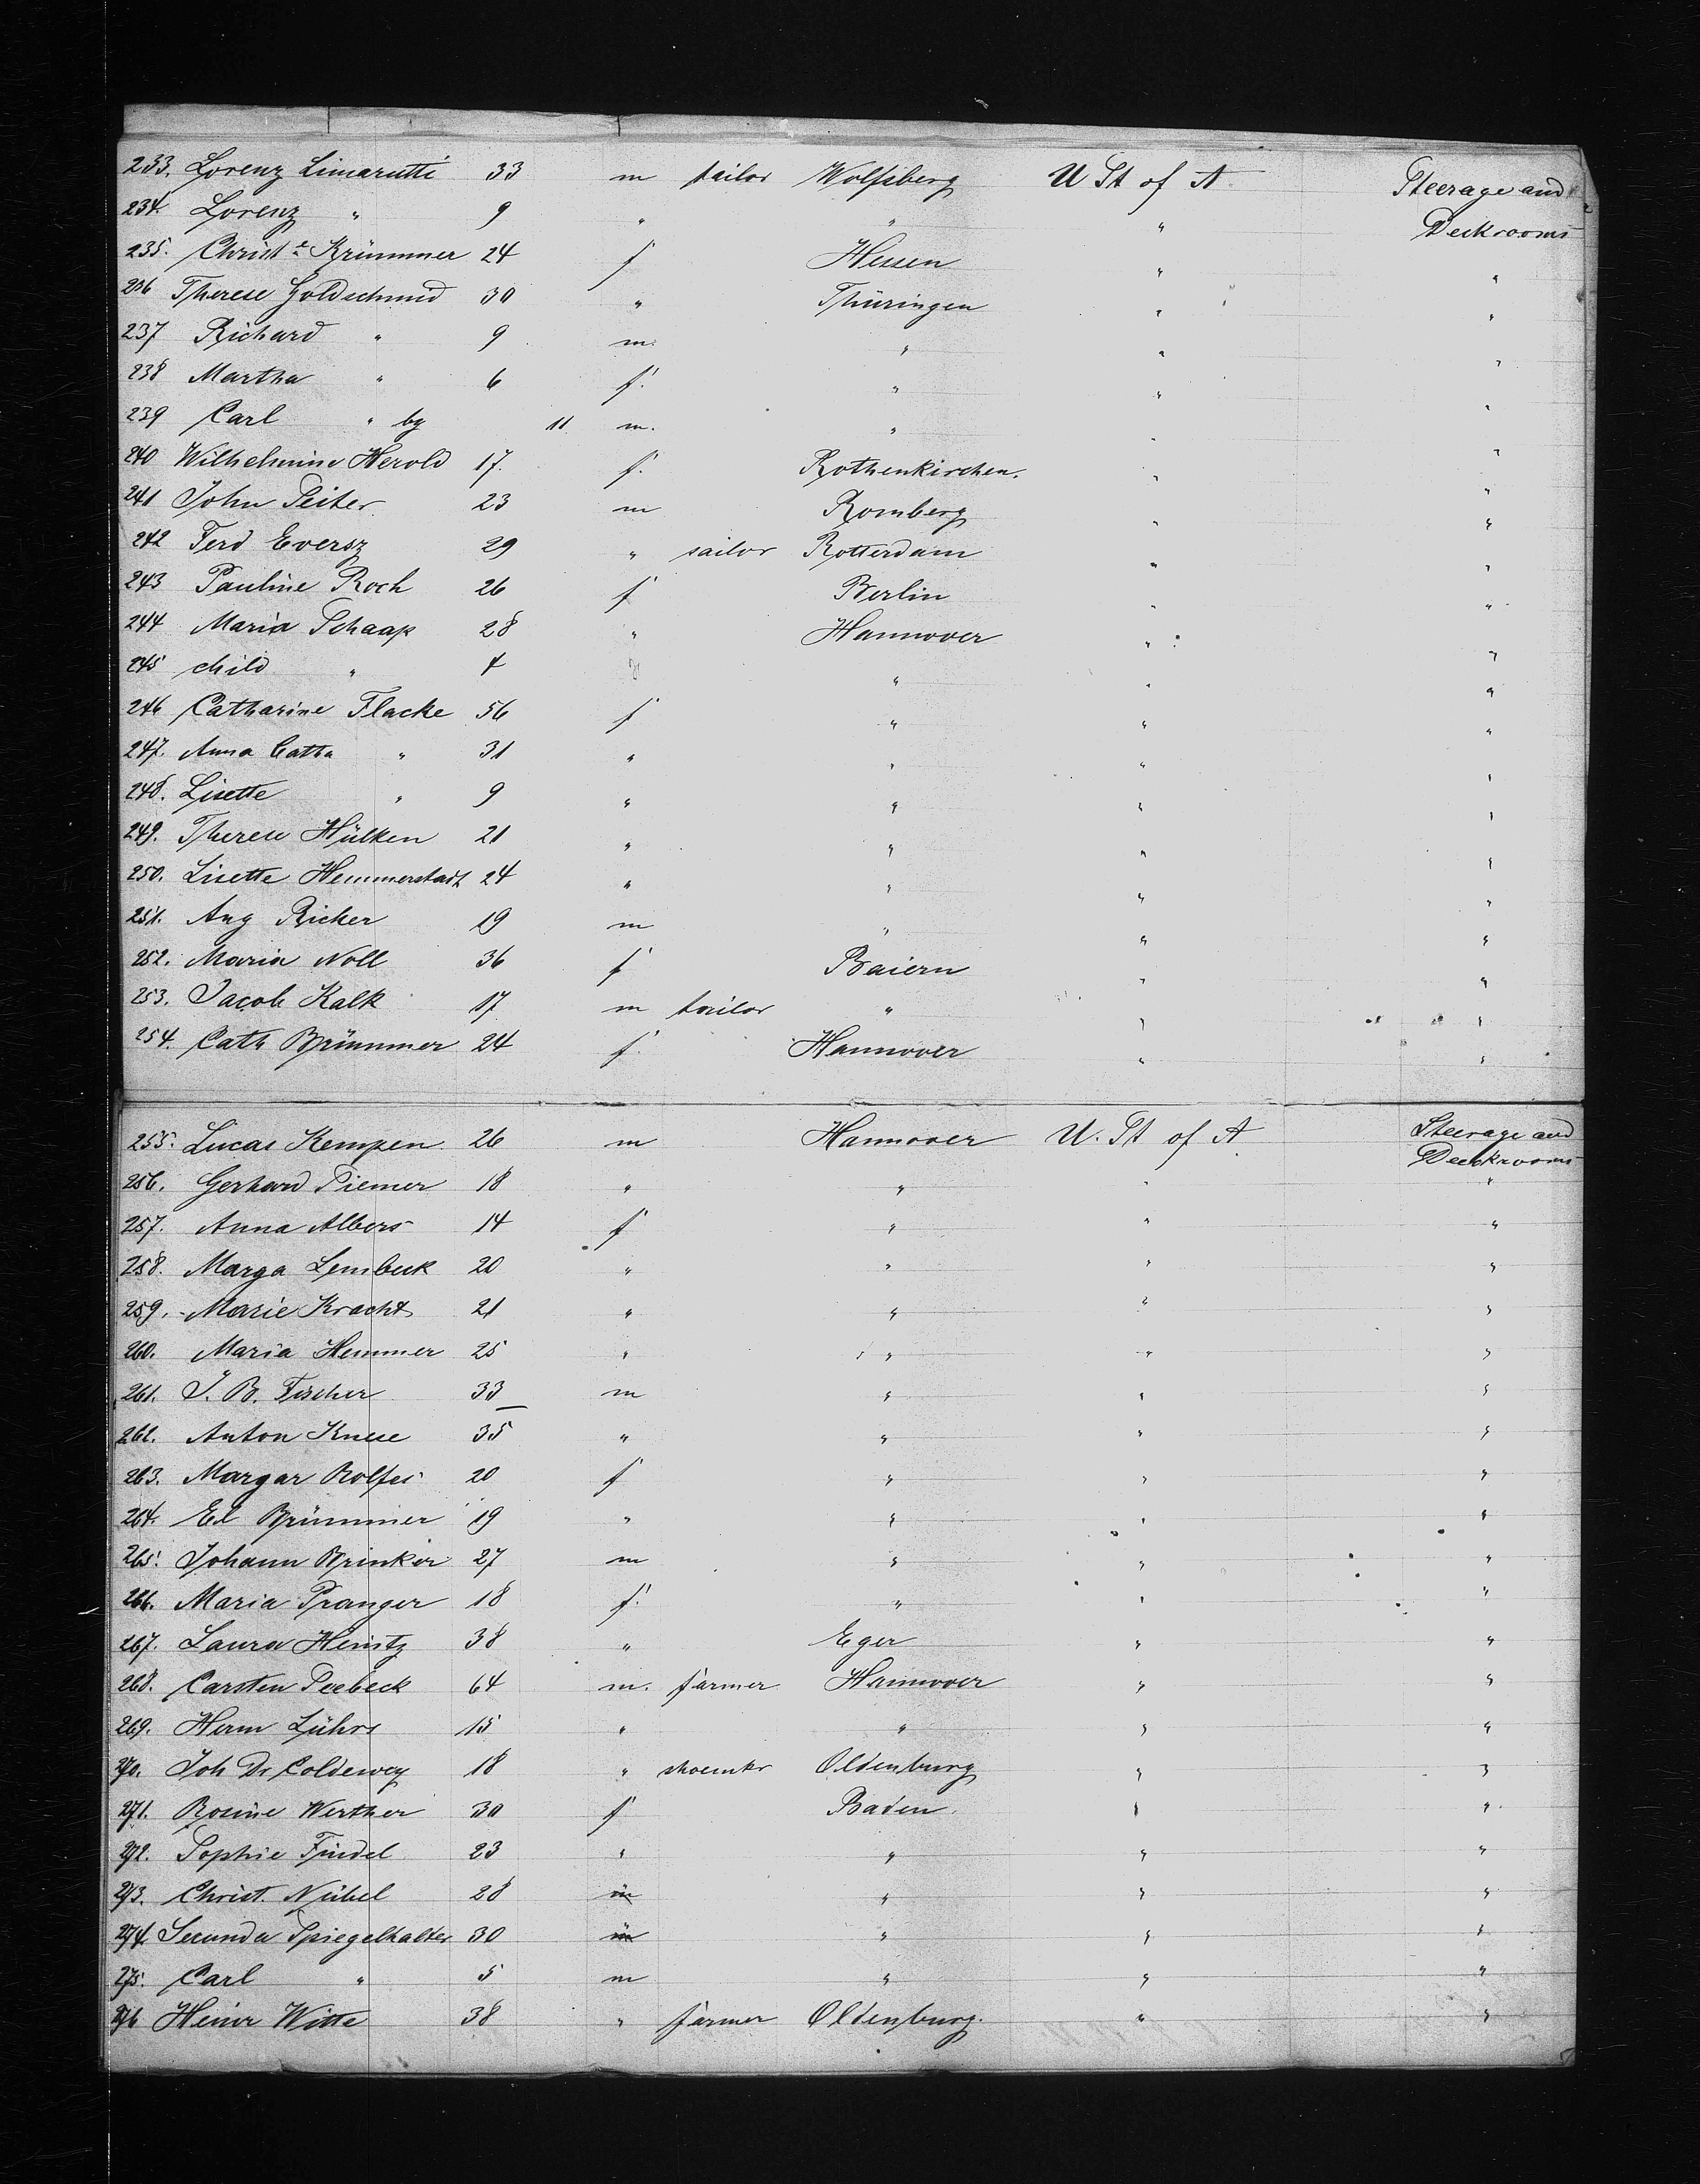 233. Lorenz Limarutti 33 m tailor Wolfsberg U St of A. Steerage and
234. Lorenz " 9 " " " Deckrooms
235. Christe Krümmer 24 f Hessen " "
236 Therese Goldschmid 30 " Thüringen " "
237 Richard " 9 m. " " "
238 Martha " 6 f. " " "
239 Carl " by 11 m. " " "
240 Wilhelmine Herold 17. f. Rothenkirchen. " "
241 John Seiter 23 m Romberg " "
242 Ferd Eversz 29 " sailor Rotterdam " "
243 Pauline Roch 26 f Berlin " "
244 Maria Schaap 28 " Hannover " "
245 child " 4 " " "
246 Catharine Flacke 56 f " " "
247. Anna Catha " 31 " " " "
248. Lisette " 9 " " " "
249. Therese Hülken 21 " " " "
250. Lisette Hemmerstadt 24 " " " "
251. Aug Ricker 19 m " " "
252. Maria Noll 36 f Baiern " "
253. Jacob Kalk 17 m tailor " " "
254. Cath Brümmer 24 f. Hannover " "
255. Lucas Kempen 26 m Hannover U. St of A Steerage and
Deckrooms
256. Gerhard Siemer 18 " " " "
257. Anna Albers 14 f " " "
258. Marga Lembeck 20 " " " "
259. Marie Kracht 21 " " " "
260. Maria Hemmer 25 " " " "
261. J. B. Fischer 33 m " " "
262. Anton Knese 35 " " " "
263. Margar Rolfes 20 f " " "
264. El Brümmer 19 " " " "
265. Johann Brinker 27 m " " "
266. Maria Pranger 18 f. " " "
267. Laura Heintz 38 " Eger " "
268. Carsten Seebeck 64 m. farmer Hannover " "
269. Herm Lührs 15 " " " "
270. Joh Dr Coldewey 18 " shoemkr Oldenburg " "
271. Rosine Werther 30 f Baden. " "
272. Sophie Findel 23 " " " "
273. Christ. Nübel 28 m " " "
274. Secunda Spiegelhalter 30 m " " "
275. Carl " 5 m " " "
276 Heinr Witte 38 " farmer Oldenburg. " "